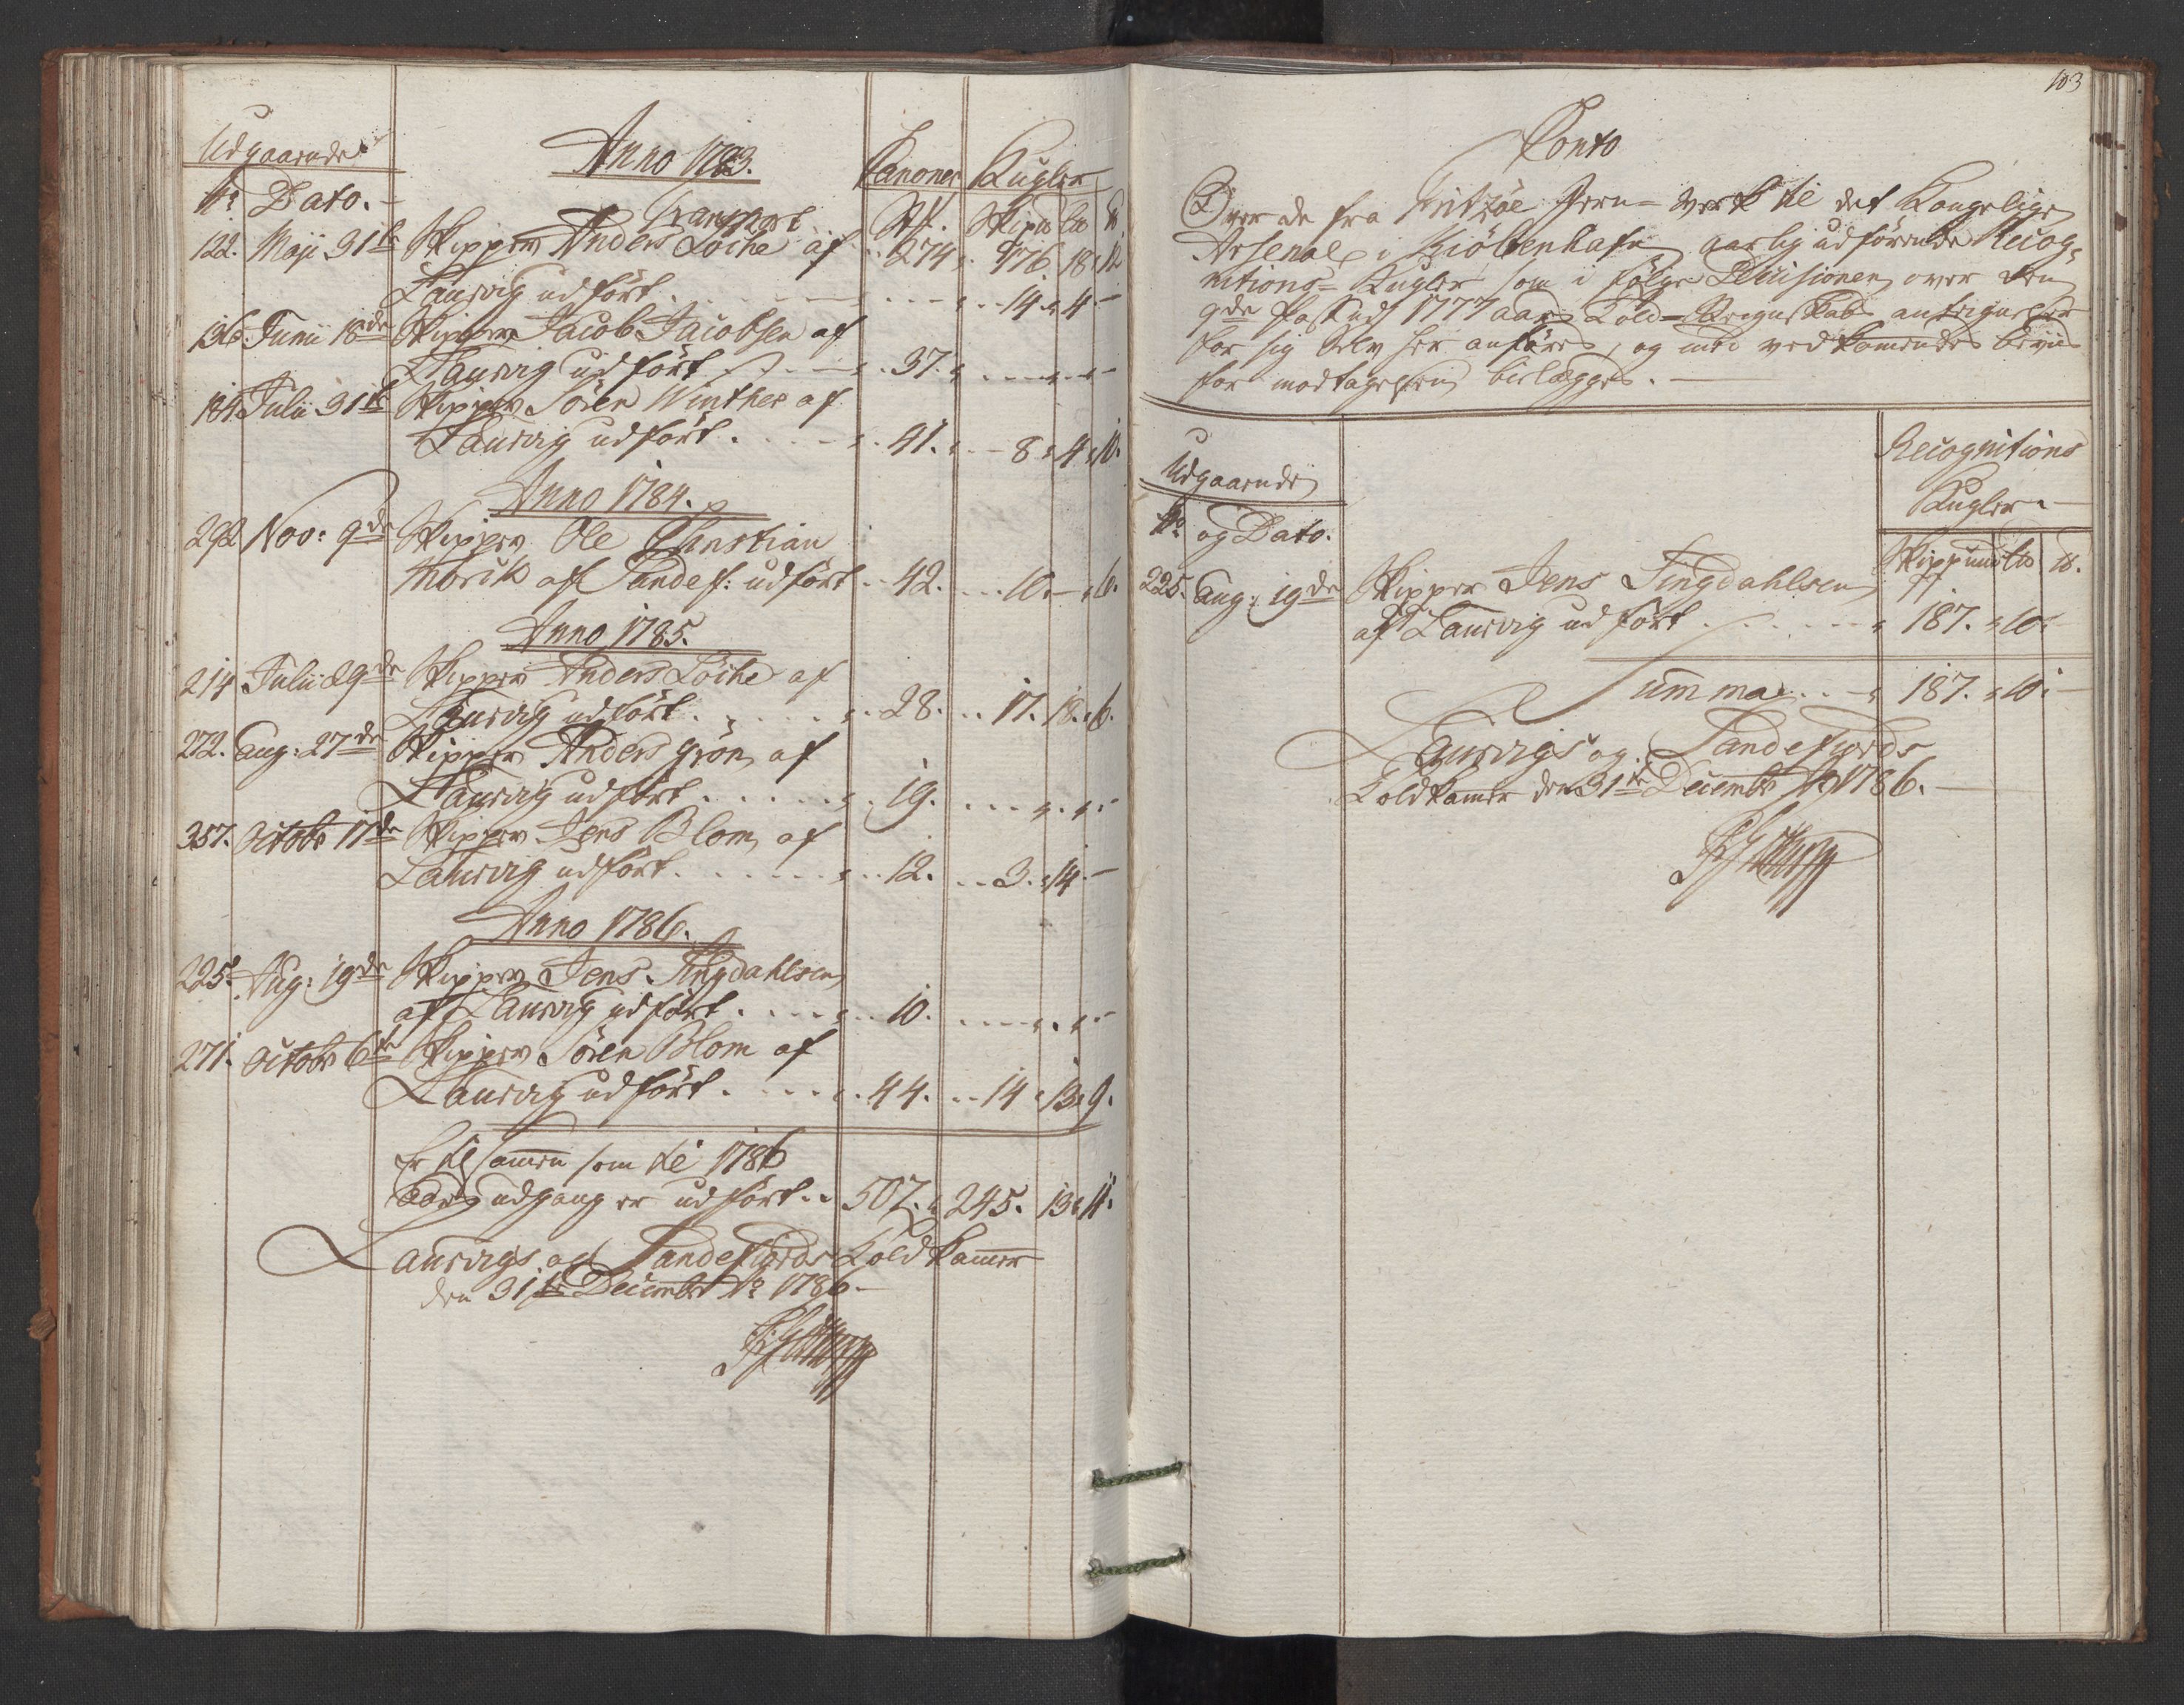 Udgaaende
Anno 1783.
Canoner Kugler
No Dato.
Transport
St. Skipd Lb lb
274. 176. 18. 12
122. Maji 31te Skipper Anders Löche af
Laurvig udfört . . . 14. 4. -
136. Junii 18de Skipper Jacob Jacobsen af
Laurvig udfört . . . 37. . . -
184. Julii 31te Skipper Sören Winther af
Laurvig udfört . . . 41. . 8. 4. 10.
Anno 1784.
292 Nov: 9de Skipper Ole Christian
af Sandef: udfört . . 42. . . 10. - . 6.
Anno 1785.
214 Julii 29de Skipper Anders Löche af
Laurvig udfört . . . 28. . . 17. 18. 6.
272. Aug: 27de Skipper Anders Grön af
Laurvig udfört . . . 19. . . . -
357. Octobr 17de Skipper Jens Blom af
Laurvig udfört . . . 12. . . 3. 14. -
Anno 1786.
225. Aug: 19de Skipper Jens Tingdahlsen
af Laurvig udfört . . . 10. . . . -
271. Octobr 6te Skipper Sören Blom af
Laurvig udfört . . . 44. . . 14. 13. 9.
Er tilsamen som til 1786
Aars udgang er udfört . . 507. 245. 13. 11.
Laurvigs og Sandefiords Told Kamer
den 31te Decembr Ao 1786.-
103
Conto
Over de fra Fritzöe Jern-Verk til det Kongelige
Arsenal i Kiöbenhafn aarlig udförende Recog-
nitions-Kugler som i fölge Decisionen over den
9de Post ud 1777 aars Told-Regnskab antegnelser
for sig Selv her anföres, og med vedkomende beviis
for modtagelsen belægges. -
Udgaaende
Recognitions
Kugler. -
No og Dato.
Skippund Lb lb.
225. Aug: 19de Skipper Jens Tingdahlsen
af Laurvig udfört . . . 187. 10. -
Summa . . 187. 10. -
Laurvigs og Sandefiords
Toldkamer den 31te Decembr Ao 1786. -